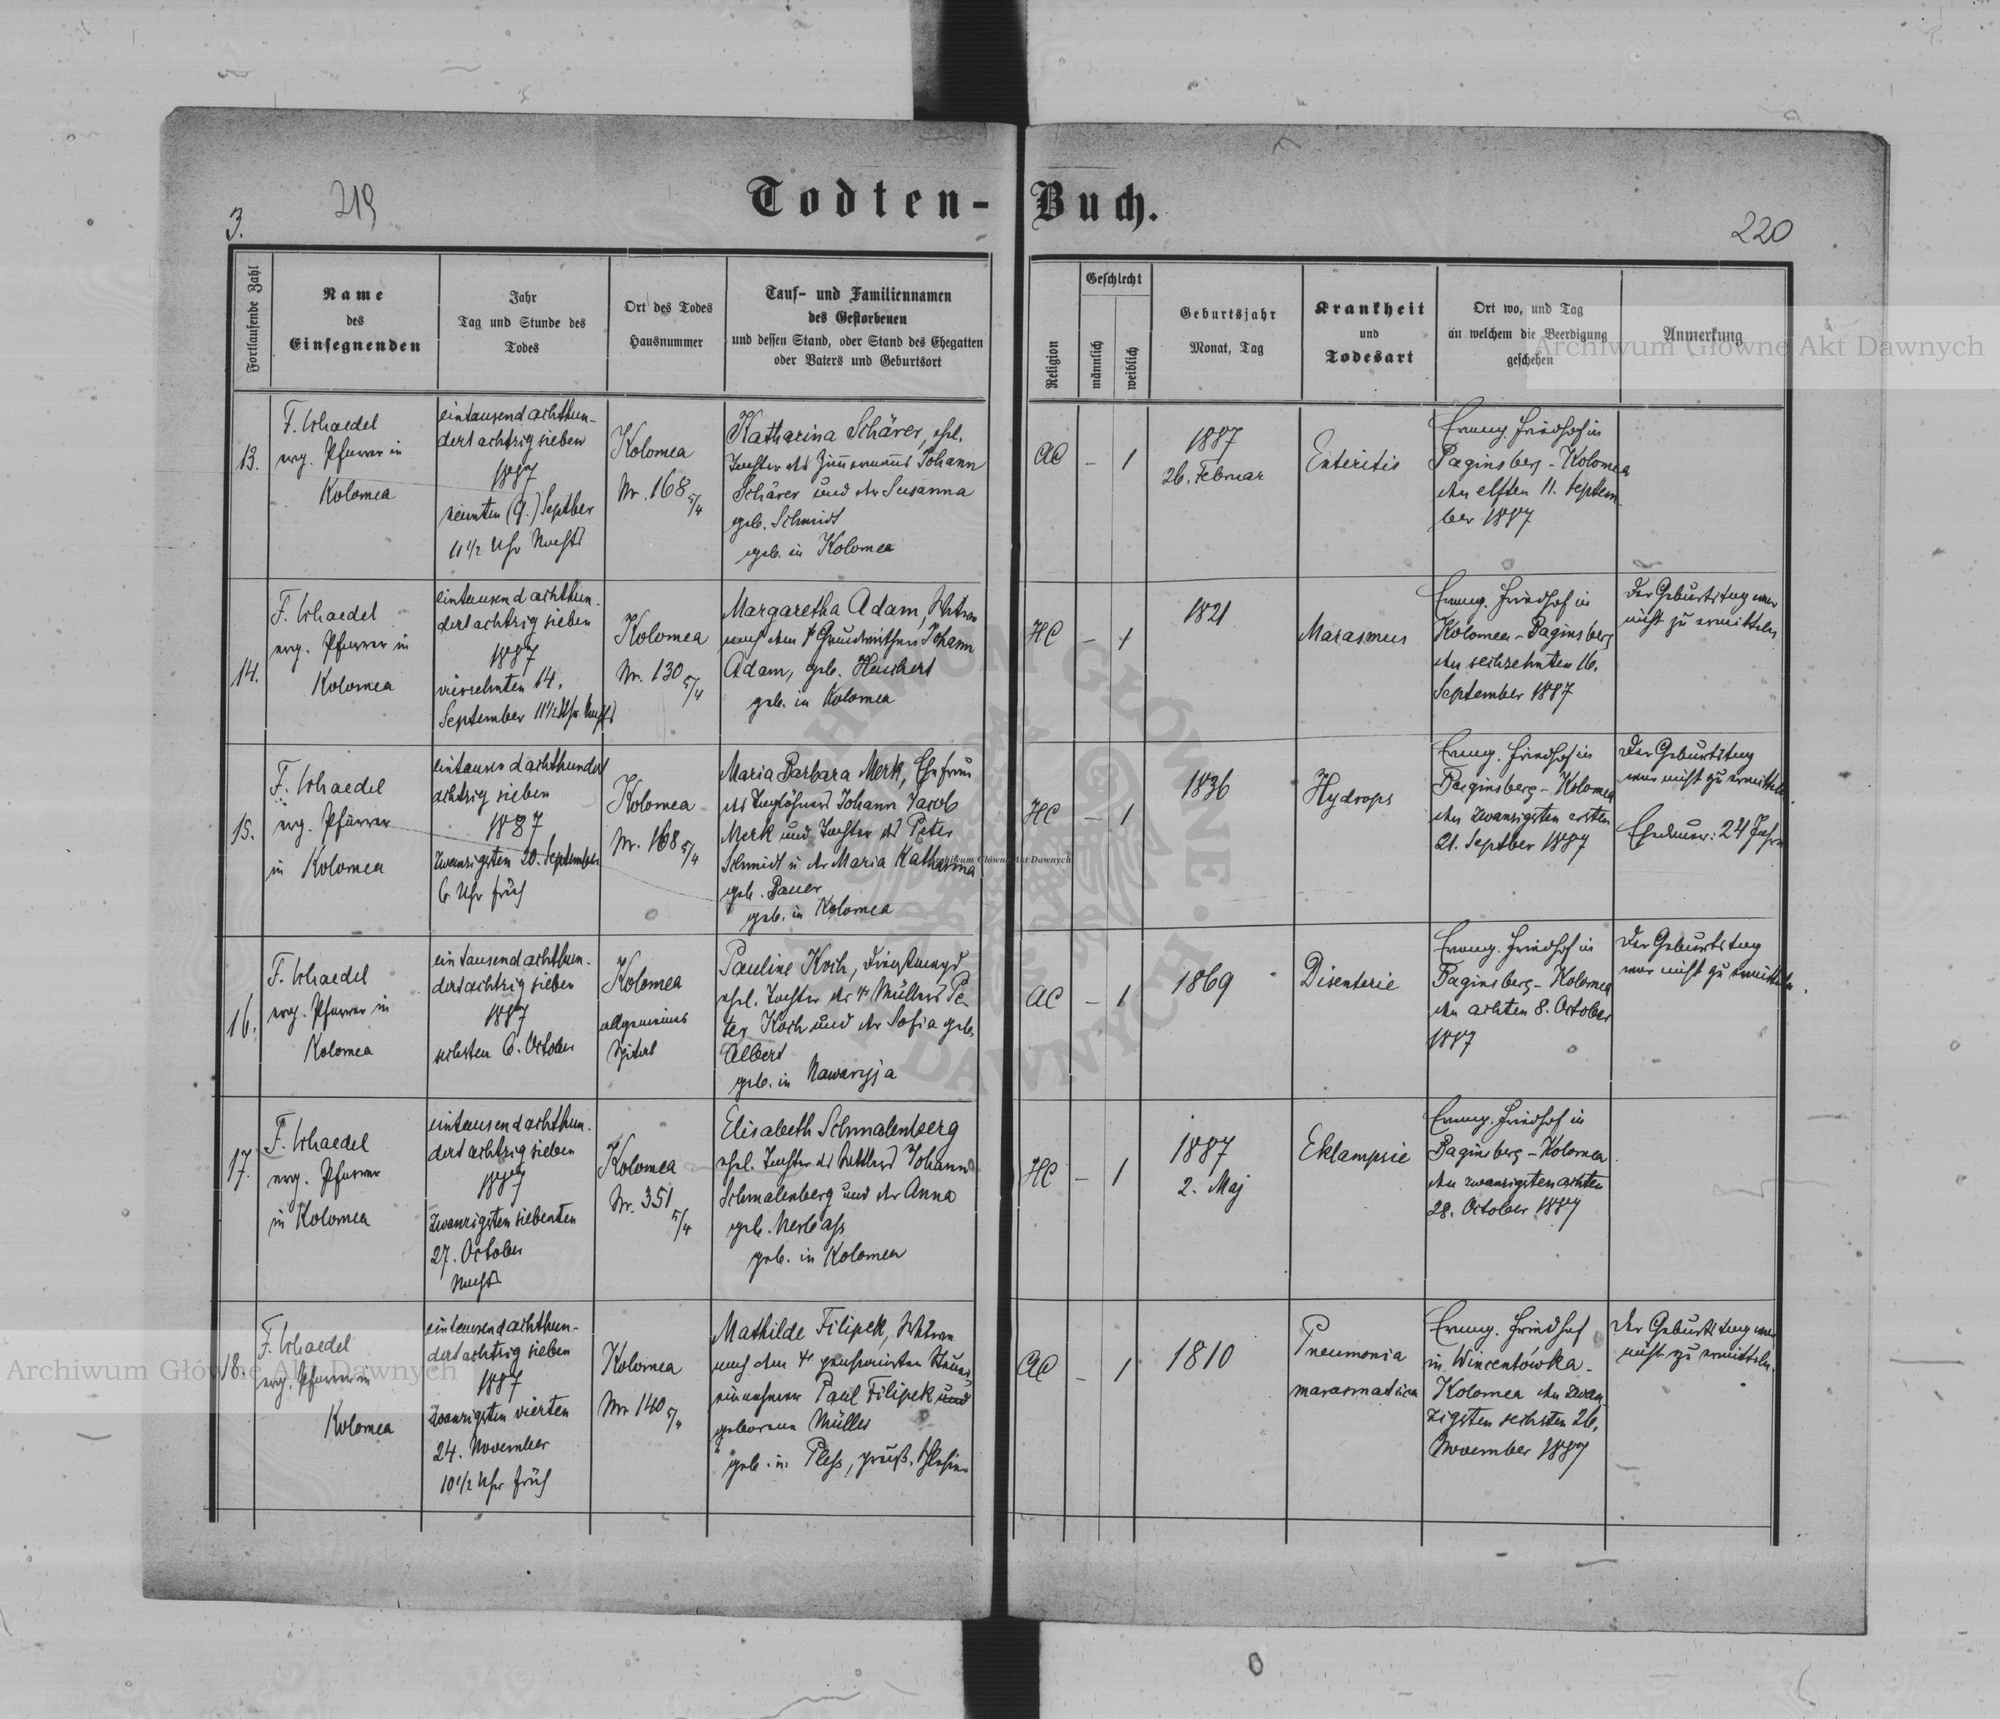 3.
219
Todten-Buch.
220
Fortlaufende Zahl
Name
des
Einsegnenden
Jahr
Tag und Stunde des
Todes
Ort des Todes
Hausnummer
Tauf- und Familiennamen
des Gestorbenen
und dessen Stand, oder Stand des Ehegatten
oder Vaters und Geburtsort
Religion
Geschlecht
männlich
weiblich
Geburtsjahr
Monat, Tag
Krankheit
und
Todesart
Ort wo, und Tag
an welchem die Beerdigung
geschehen
Anmerkung
13.
F. Schaedel
evg. Pfarrer in
Kolomea
eintausend achthun-
dert achtzig sieben
1887
neunten (9.) Septber
11 1/2 Uhr Nachts
Kolomea
Nr. 168 5/4
Katharina Schärer, ehel.
Tochter des Zimmermanns Johann
Schärer und der Susanna
geb. Schmidt
geb. in Kolomea
AC
–
1
1887
26. Februar
Enteritis
Evang. Friedhof in
Baginsberg - Kolomea
den elften 11. Septem-
ber 1887
14.
F. Schaedel
evg. Pfarrer in
Kolomea
eintausend achthun-
dert achtzig sieben
1887
vierzehnten 14.
September 11 1/2 Uhr Nachts
Kolomea
Nr. 130 5/4
Margaretha Adam, Witwe
nach dem † Grundwirthen Johann
Adam, geb. Heuchert
geb. in Kolomea
HC
–
1
1821
Marasmus
Evang. Friedhof in
Kolomea - Baginsberg
den sechzehnten 16.
September 1887
Der Geburtstag war
nicht zu ermitteln
15.
F. Schaedel
evg. Pfarrer
in Kolomea
eintausend achthundert
achtzig sieben
1887
zwanzigsten 20. September
6 Uhr früh
Kolomea
Nr. 168 5/4
Maria Barbara Merk, Ehefrau
des Taglöhners Johann Jacob
Merk und Tochter des Peter
Schmidt u. der Maria Katharina
geb. Bauer
geb. in Kolomea
HC
–
1
1836
Hydrops
Evang. Friedhof in
Baginsberg - Kolomea
den zwanzigsten ersten
21. Septber 1887
Der Geburtstag
war nicht zu ermitteln.
Ehedauer: 24 Jahre
16.
F. Schaedel
evg. Pfarrer in
Kolomea
eintausend achthun-
dert achtzig sieben
1887
sechsten 6. October
Kolomea
allgemeines
Spital
Pauline Koch, Dienstmagd
ehel. Tochter des † Müllers Pe-
ter Koch und der Sofia geb.
Albert
geb. in Nawaryja
AC
–
1
1869
Disenterie
Evang. Friedhof in
Baginsberg - Kolomea
den achten 8. October
1887
Der Geburtstag
war nicht zu ermitteln.
17.
F. Schaedel
evg. Pfarrer
in Kolomea
eintausend achthun-
dert achtzig sieben
1887
zwanzigsten siebenten
27. October
Nachts
Kolomea
Nr. 351 5/4
Elisabeth Schmalenberg
ehel. Tochter des Sattlers Johann
Schmalenberg und der Anna
geb. Nerbass
geb. in Kolomea
HC
–
1
1887
2. Maj
Eklampsie
Evang. Friedhof in
Baginsberg - Kolomea
den zwanzigsten achten
28. October 1887
18.
F. Schaedel
evg. Pfarrer in
Kolomea
eintausend achthun-
dert achtzig sieben
1887
zwanzigsten vierten
24. November
10 1/2 Uhr früh
Kolomea
Nr. 140 5/4
Mathilde Filipek, Witwe
nach dem † pensionirten Steuer-
einnehmer Paul Filipek und
geborene Müller
geb. in Pless, preuß. Schlesien
AC
–
1
1810
Pneumonia
marasmatica
Evang. Friedhof
in Wincentówka -
Kolomea den zwan-
zigsten sechsten 26.
November 1887
Der Geburtstag war
nicht zu ermitteln.
Archiwum Główne Akt Dawnych
Archiwum Główne Akt Dawnych
Archiwum Główne Akt Dawnych